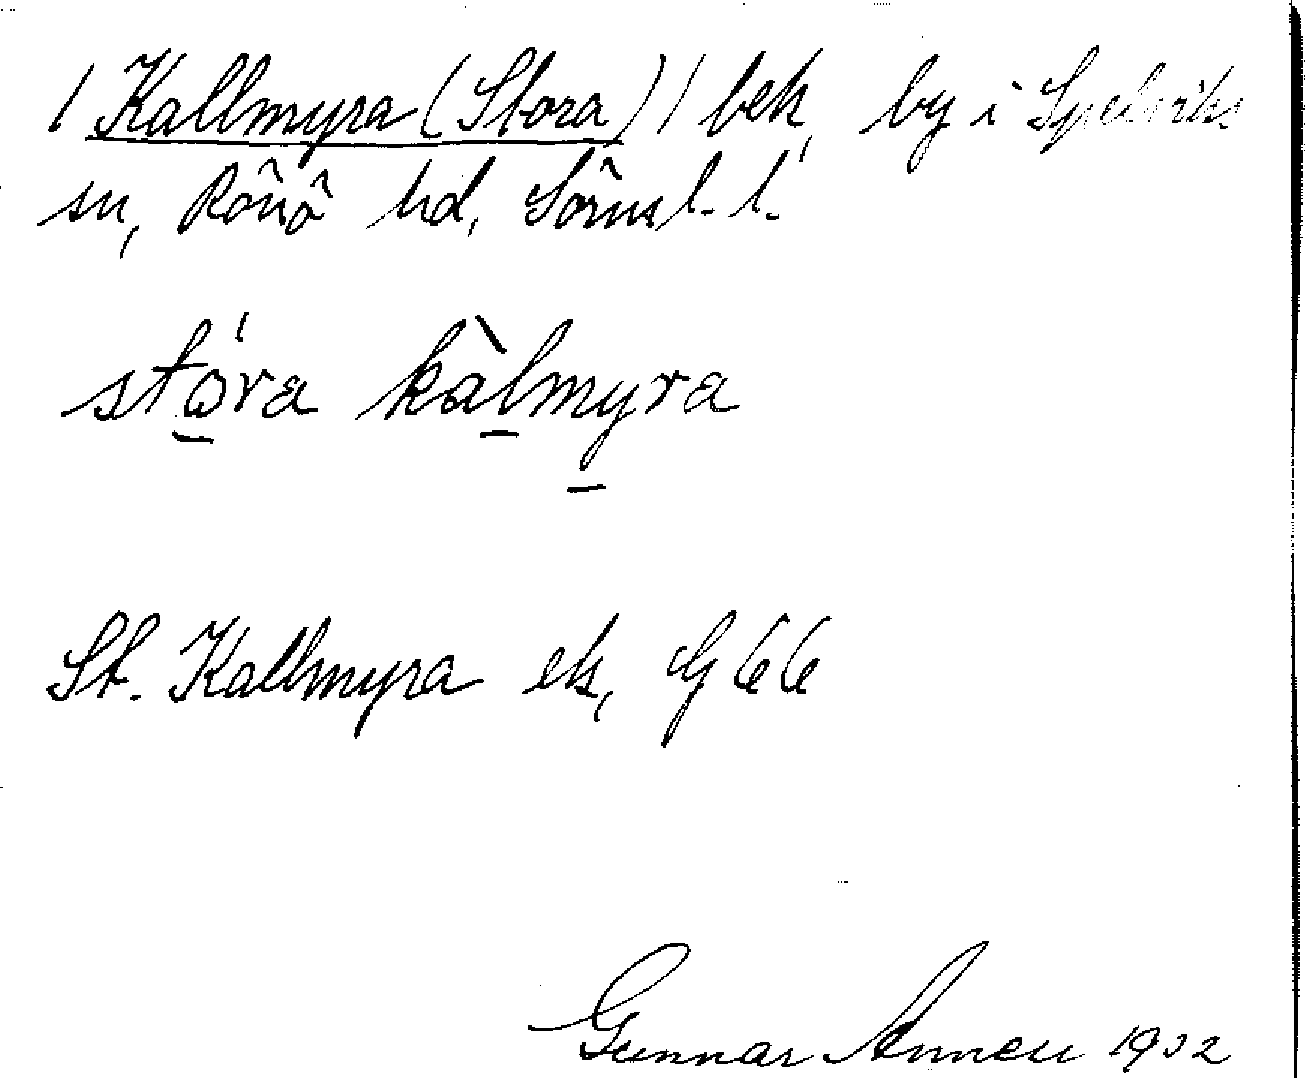 / Kallmyra (Stora) / bek, by i Spelviks
sn, Rönö hd, Sörml. l.
stóra kàlmyra
St. Kallmyra ek, G 66
Gunnar 1932